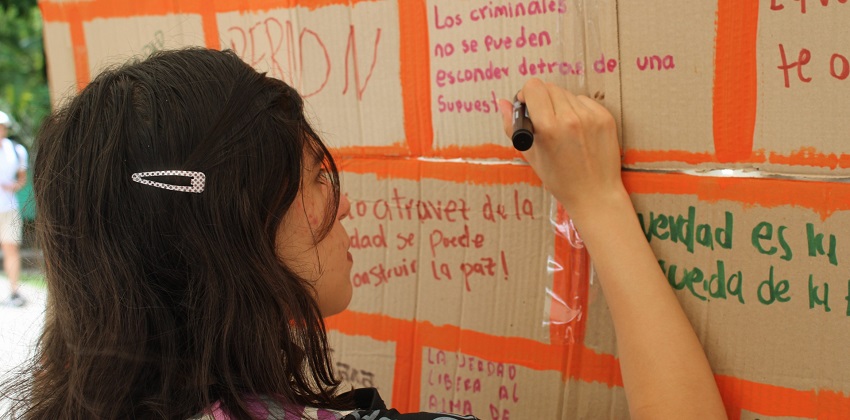 Los criminales
no se pueden
esconder detras de una
Supuest
te o
atravez de la
dad se puede
onstruir la paz!
verdad es la
queda de la
LA VERDAD
LIBERA AL
ALMA DE